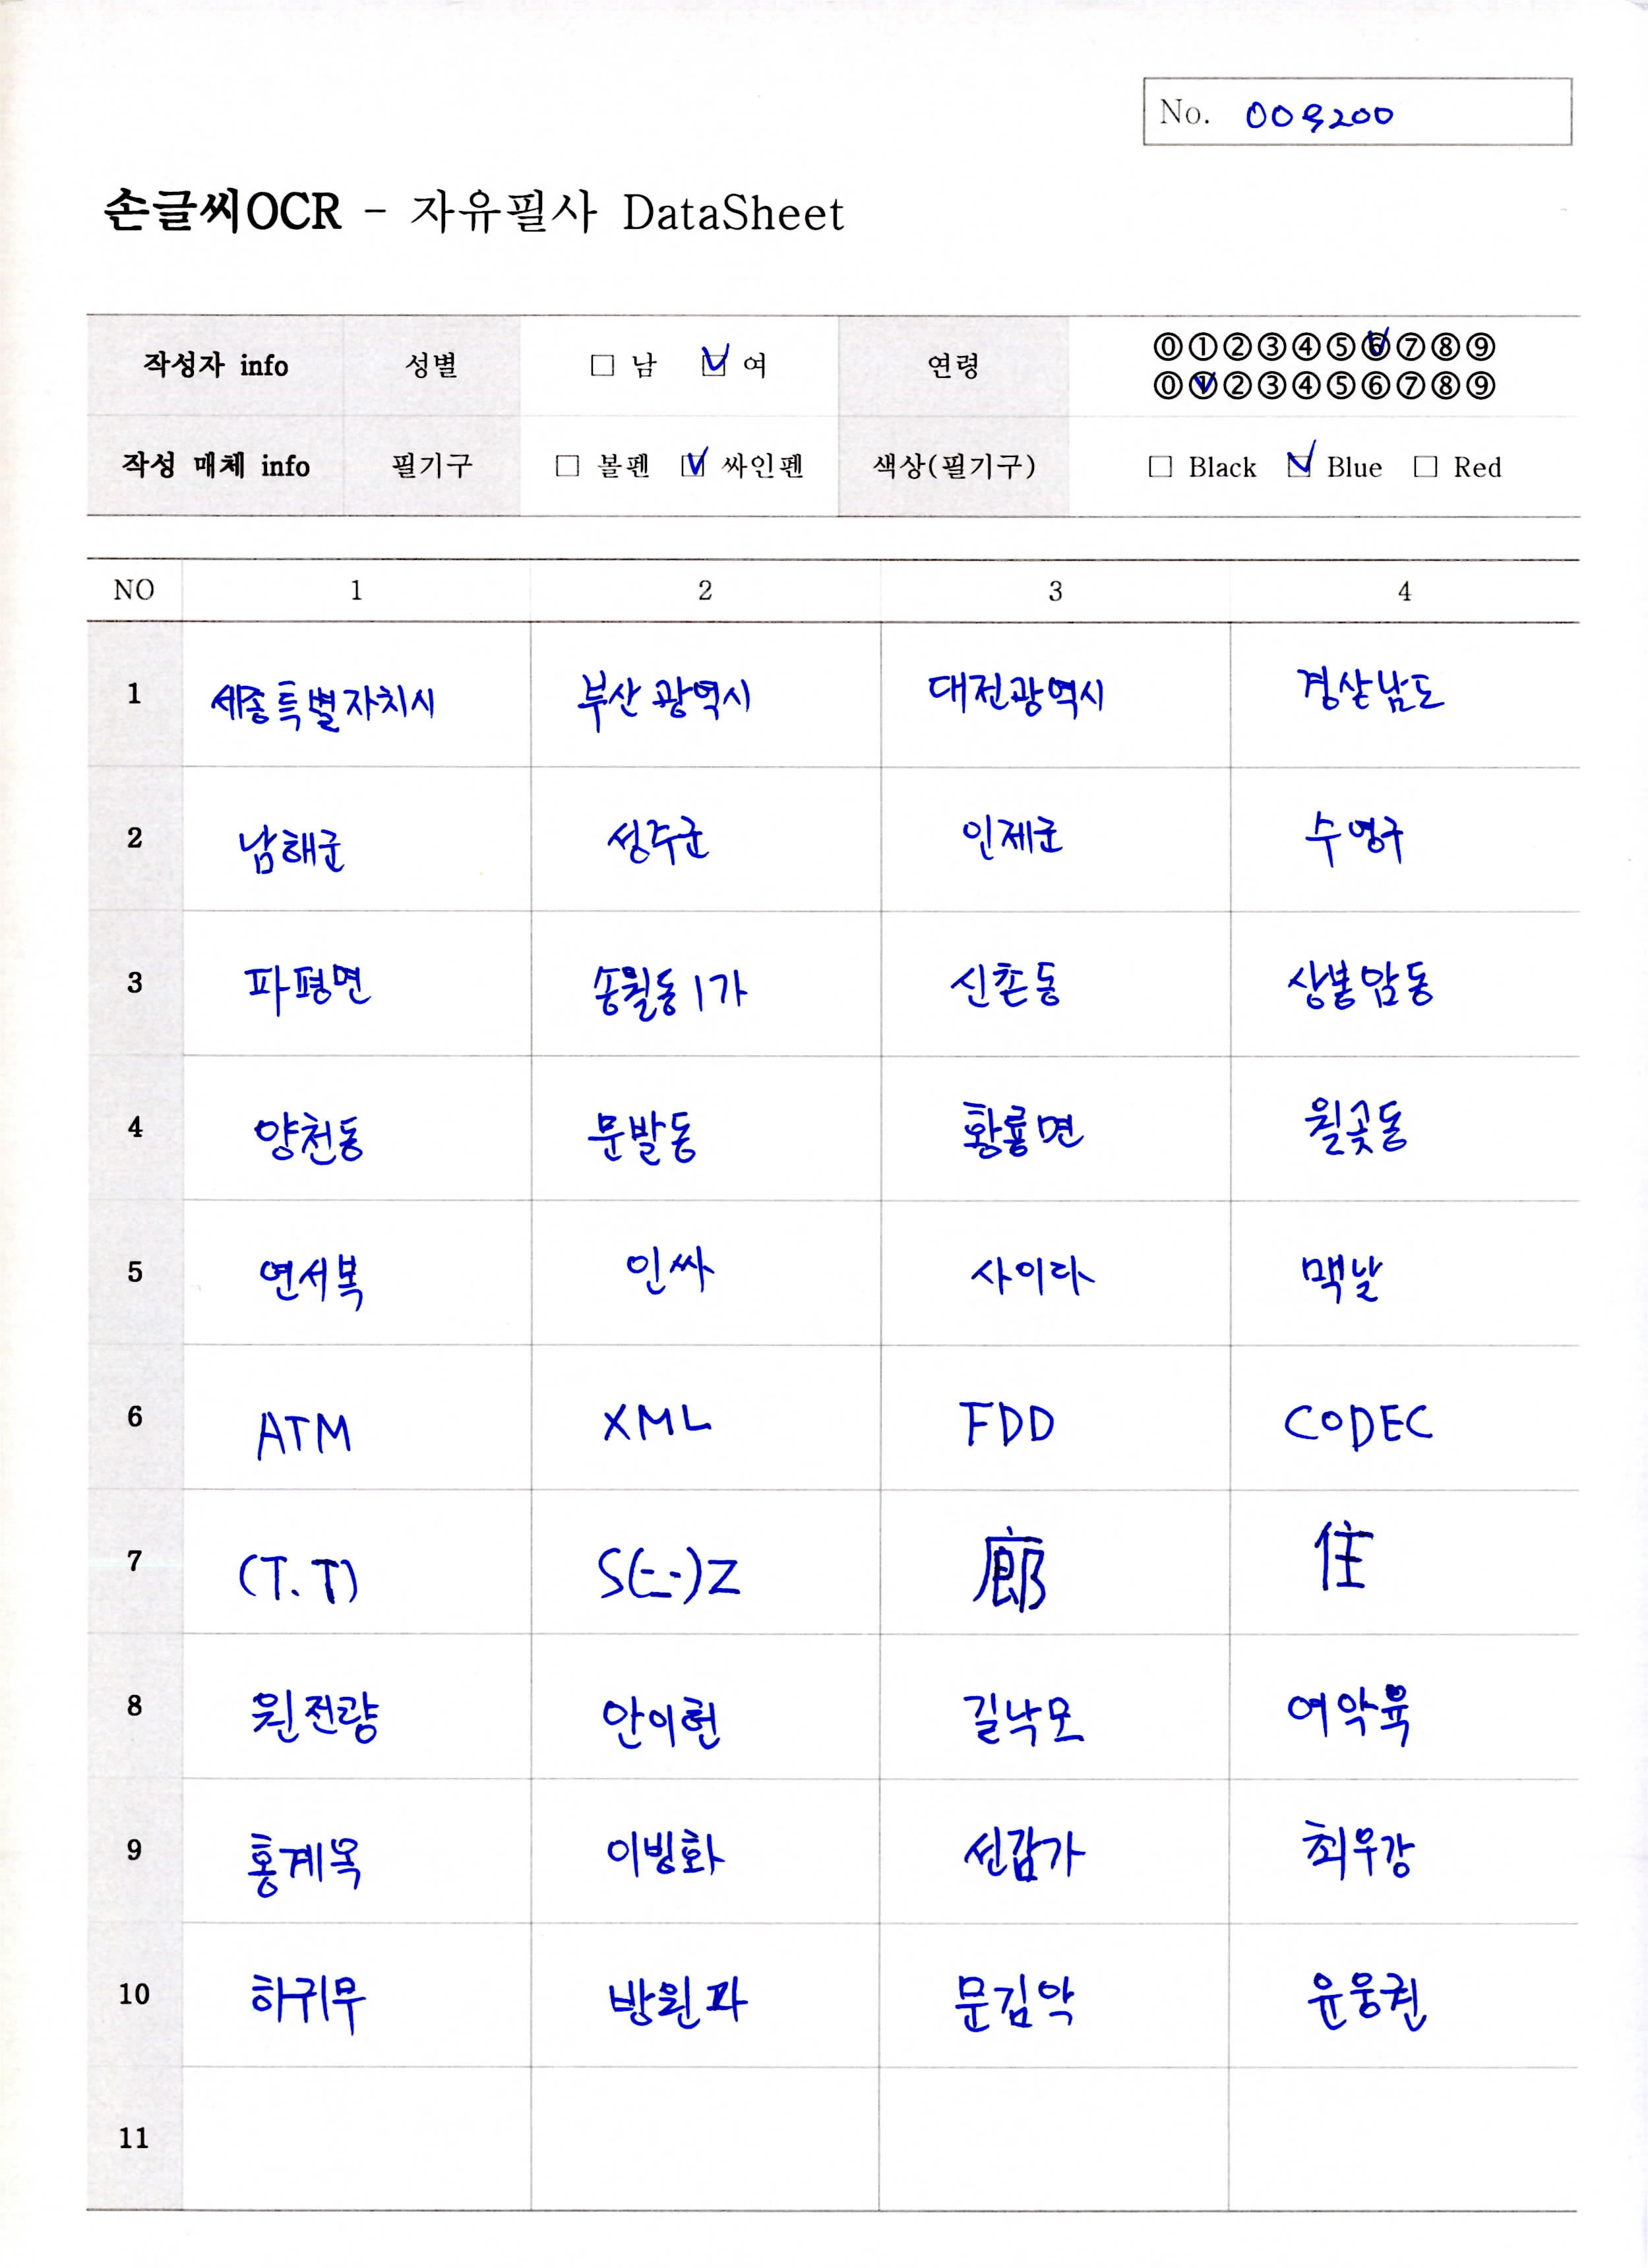 No. 009200
손글씨OCR - 자유필사 DataSheet
작성자 info 성별 □ 남 ☑ 여 연령 ⓪①②③④⑤⑥⑦⑧⑨
⓪①②③④⑤⑥⑦⑧⑨
작성 매체 info 필기구 □ 볼펜 ☑ 싸인펜 색상(필기구) □ Black ☑ Blue □ Red
NO 1 2 3 4
1 세종특별자치시 부산광역시 대전광역시 경상남도
2 남해군 성주군 인제군 수영구
3 파평면 송월동1가 신촌동 상봉암동
4 양천동 문발동 황룡면 월곶동
5 연서복 인싸 사이다 맥날
6 ATM XML FDD CODEC
7 (T.T) S(-.-)Z 廊 住
8 원전량 안이헌 길낙모 여악육
9 홍계옥 이빙화 선갑가 최우강
10 하귀무 방원파 문김악 윤웅권
11